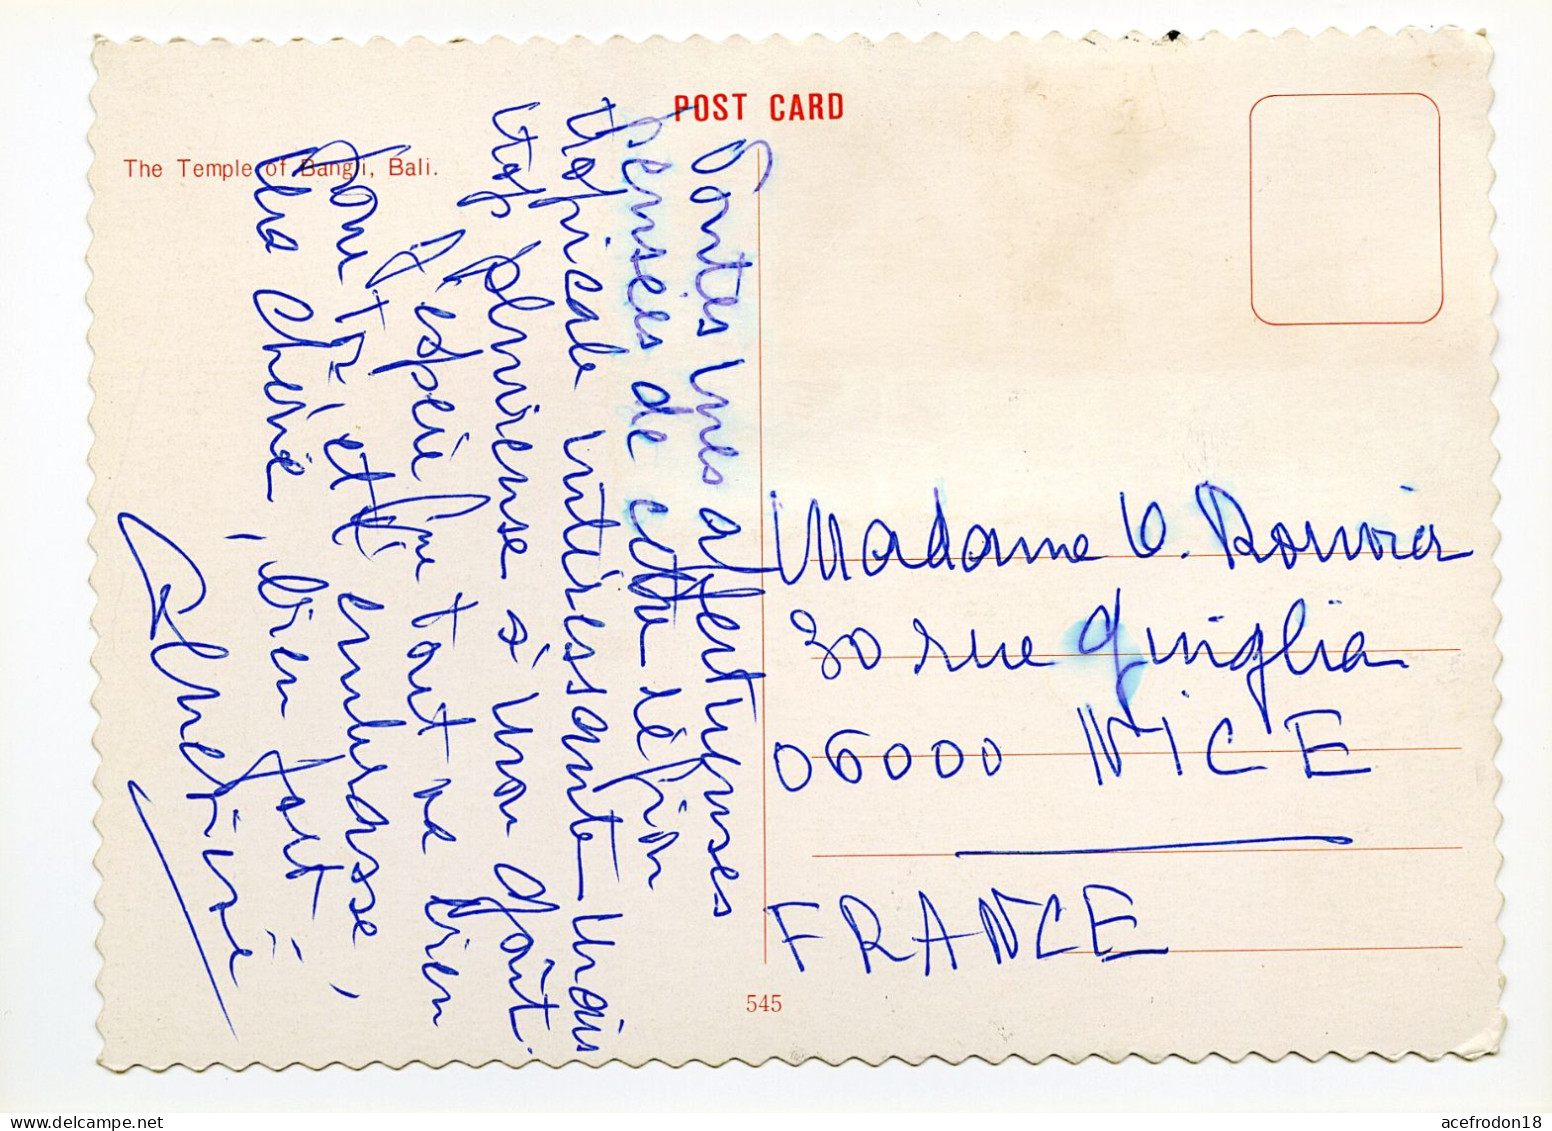 POST CARD
The Temple of Bangli, Bali.
Toutes mes affectueuses
pensées de cette région
tropicale intéressante mais
trop pluvieuse à mon goût.
J'espère que tout va bien
pour toi et t'embrasse,
ma chérie, bien fort
Madame V. Bouvier
30 rue Guiglia
06000 NICE
FRANCE
545
acefrodon18